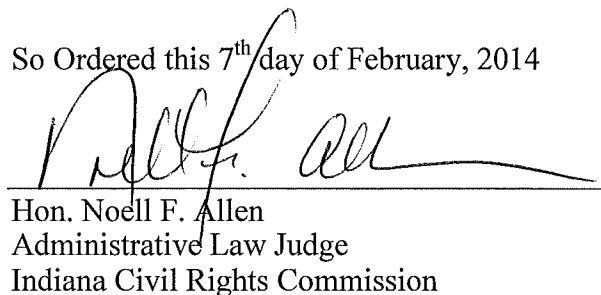 So Ordered this 7th day of February, 2014
Noell F. Allen
Hon. Noell F. Allen
Administrative Law Judge
Indiana Civil Rights Commission